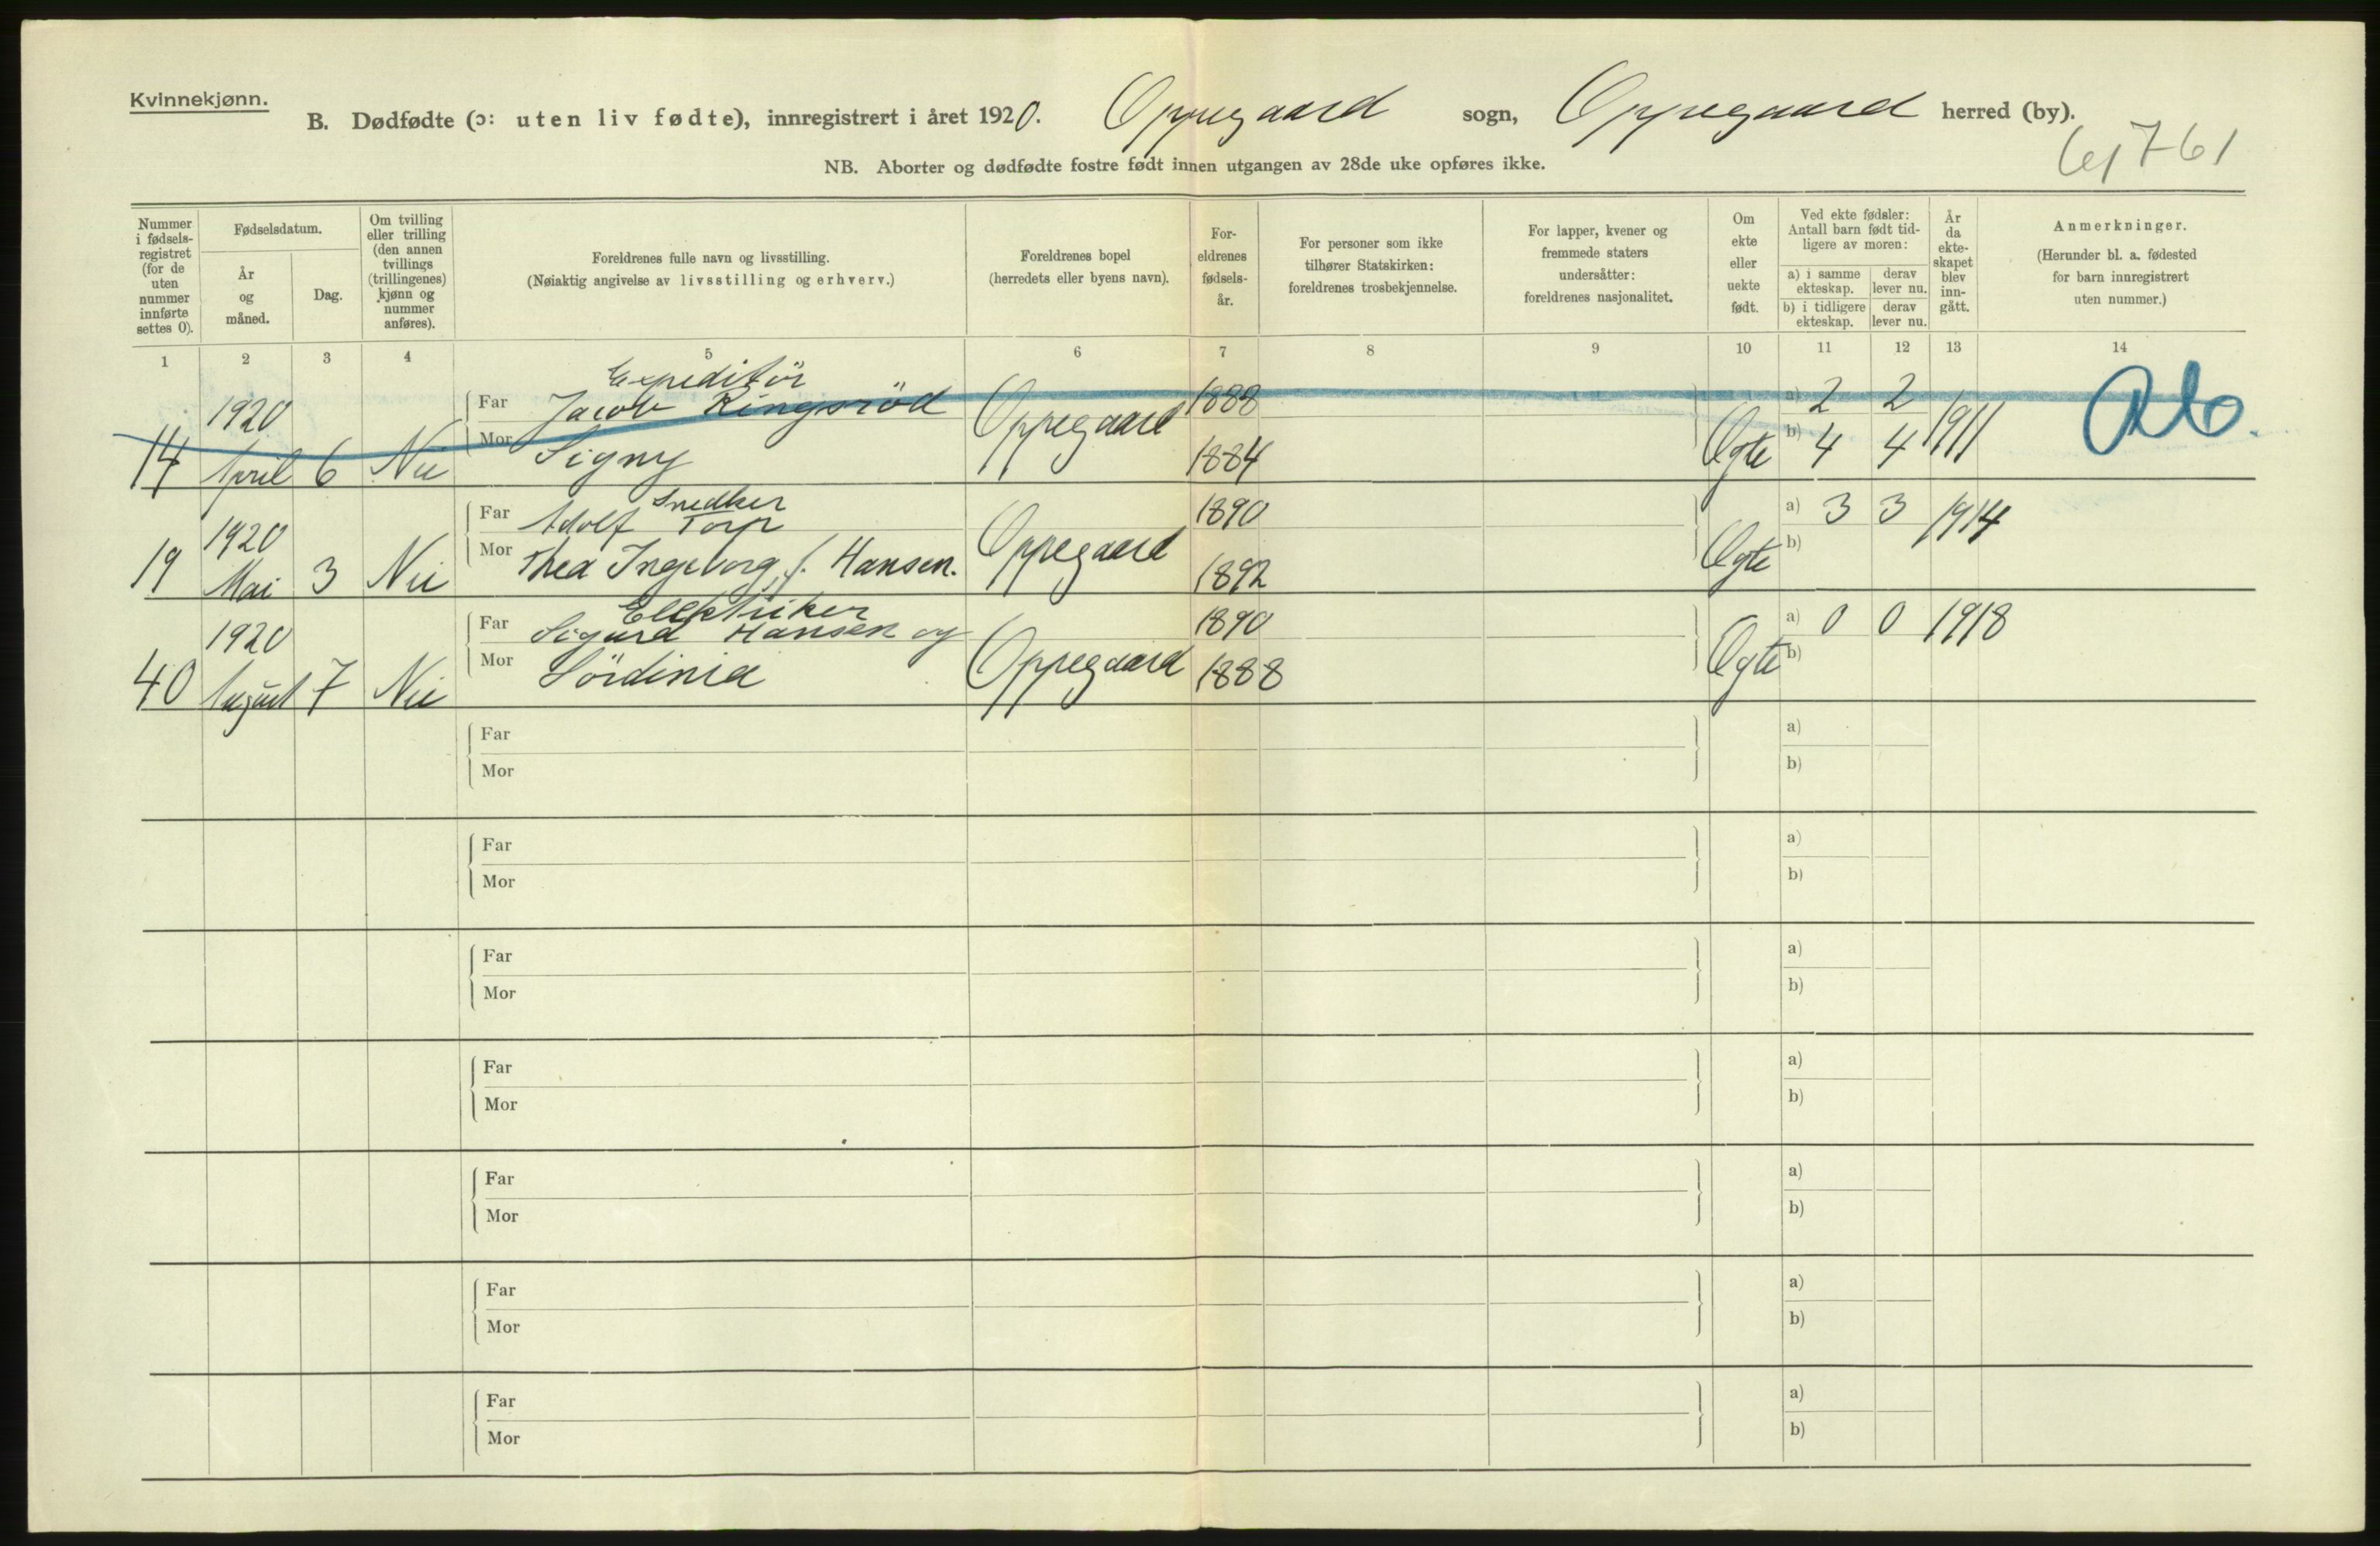 Kvinnekjønn.
B. Dødfødte (ɔ: uten liv fødte), innregistrert i året 1920. Oppegaard sogn, Oppegaard herred (by).
61761
NB. Aborter og dødfødte fostre født innen utgangen av 28de uke opføres ikke.
Nummer i fødsels-registret (for de uten nummer innførte settes 0).
Fødselsdatum.
År og måned.
Dag.
Om tvilling eller trilling (den annen tvillings (trillingenes) kjønn og nummer anføres).
Foreldrenes fulle navn og livsstilling.
(Nøiaktig angivelse av livsstilling og erhverv.)
Foreldrenes bopel
(herredets eller byens navn).
For-eldrenes fødsels-år.
For personer som ikke tilhører Statskirken: foreldrenes trosbekjennelse.
For lapper, kvener og fremmede staters undersåtter: foreldrenes nasjonalitet.
Om ekte eller uekte født.
Ved ekte fødsler: Antall barn født tid-ligere av moren:
a) i samme ekteskap.
derav lever nu.
b) i tidligere ekteskap.
derav lever nu.
År da ekte-skapet blev inn-gått.
Anmerkninger.
(Herunder bl. a. fødested for barn innregistrert uten nummer.)
1 2 3 4 5 6 7 8 9 10 11 12 13 14
Expeditör
1920 Far Jacob Ringsröd 1888 a) 2 2
14 April 6 Nei Mor Signy Oppegaard 1884 Egte b) 4 4 1911
Snedker
1920 Far Adolf Torp 1890 a) 3 3 1914
19 Mai 3 Nei Mor Thea Ingeborg, f. Hansen. Oppegaard 1892 Egte b)
Elektriker
1920 Far Sigurd Hansen og 1890 a) 0 0 1918
40 August 7 Nei Mor Sördinia Oppegaard 1888 Egte b)
Far a)
Mor b)
Far a)
Mor b)
Far a)
Mor b)
Far a)
Mor b)
Far a)
Mor b)
Far a)
Mor b)
Far a)
Mor b)